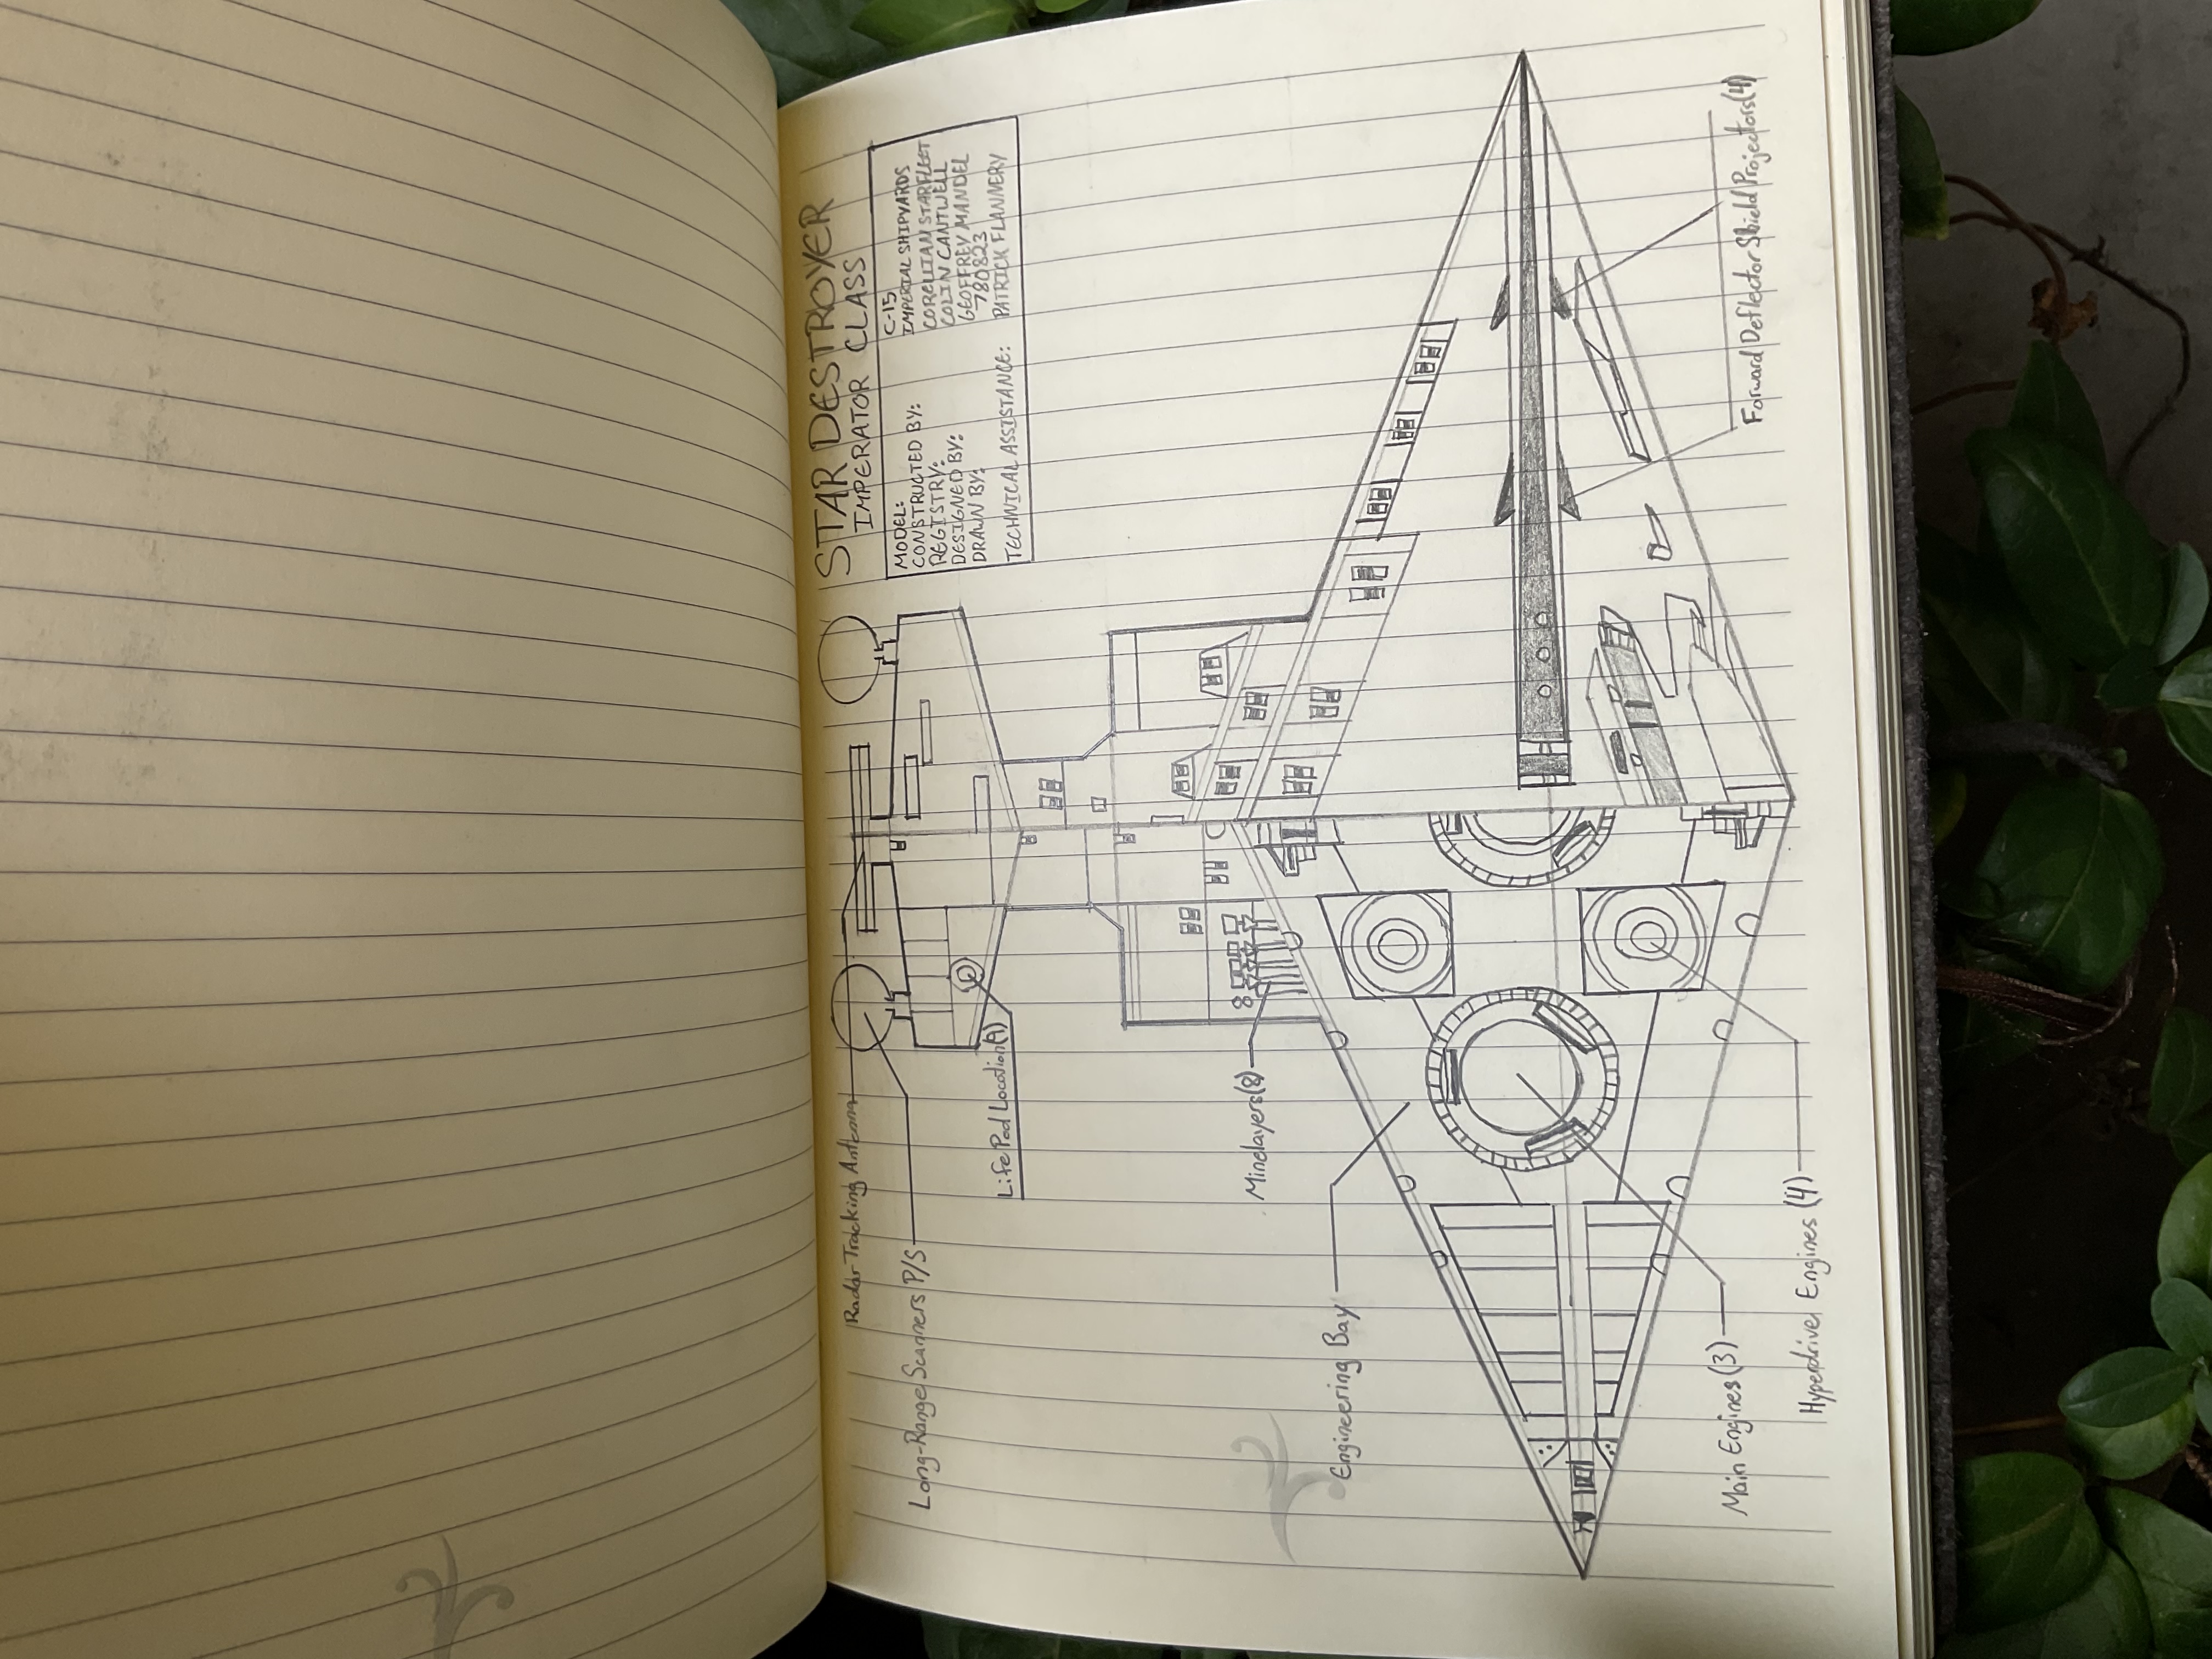 STAR DESTROYER
IMPERATOR CLASS
MODEL: C-15
CONSTRUCTED BY: IMPERIAL SHIPYARDS
REGISTRY: CORELLIAN STARFLEET
DESIGNED BY: COLIN CANTWELL
DRAWN BY: GEOFFREY MANDEL
780823
TECHNICAL ASSISTANCE: PATRICK FLANNERY
Radar Tracking Antenna
Long-Range Scanners P/S
Life Pod Location
8
Minelayers(8)
Engineering Bay
Main Engines(3)
Hyperdrive Engines (4)
Forward Deflector Shield Projectors(4)